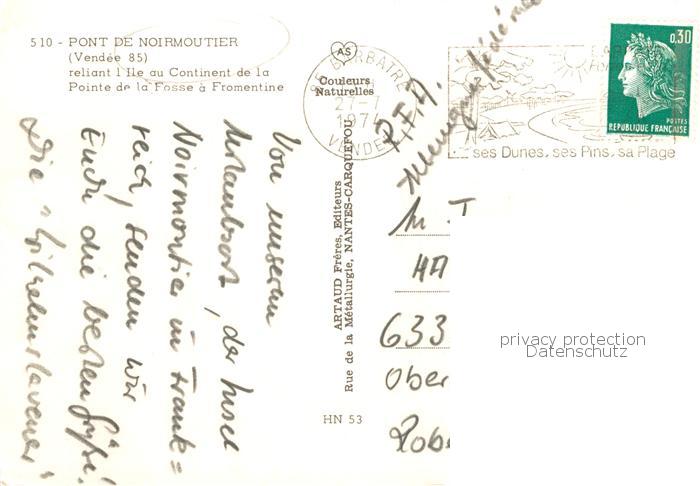 510 - PONT DE NOIRMOUTIER
(Vendée 85)
reliant l'Ile au Continent de la
Pointe de la Fosse à Fromentine
AS
Couleurs
Naturelles
85 BARBATRE
27-7
1974
VENDEE
0,30
POSTES
REPUBLIQUE FRANÇAISE
ses Dunes, ses Pins, sa Plage
R.F.A.
Allemagne fédérale
ARTAUD Frères, Editeurs
Rue de la Métallurgie, NANTES-CARQUEFOU
HN 53
Von unserem
Urlaubsort, der Insel
Noirmoutier in Frank=
reich, senden wir
Euch die besten Grüße!
Die "
M. T
633
Ober
Rob
privacy protection
Datenschutz